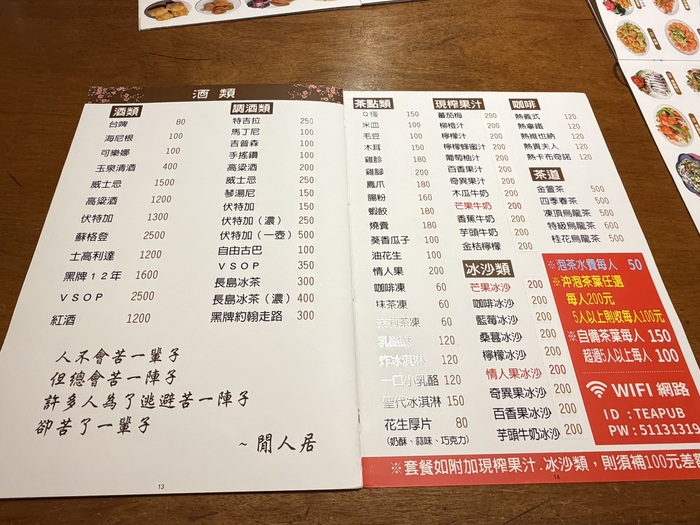 酒類
酒類
台啤 80
海尼根 100
可樂娜 100
玉泉清酒 400
威士忌 1500
高粱酒 1200
伏特加 1300
蘇格登 2500
士高利達 1200
黑牌12年 1600
VSOP 2500
紅酒 1200
調酒類
特吉拉 250
馬丁尼 100
吉普森 100
手搖鑽 100
高粱酒 200
威士忌 250
琴湯尼 150
伏特加 150
伏特加（濃） 250
伏特加（一壺） 500
自由古巴 100
VSOP 350
長島冰茶 300
長島冰茶（濃） 400
黑牌約翰走路 300
人不會苦一輩子
但總會苦一陣子
許多人為了逃避苦一陣子
卻苦了一輩子
~閒人居
13
茶點類
Q梅 150
米血 100
毛豆 100
木耳 150
雞胗 180
雞腳 200
鳳爪 180
腸粉 160
蝦餃 180
燒賣 180
葵香瓜子 100
油花生 100
情人果 200
咖啡凍 60
抹茶凍 60
茶凍 60
120
炸冰淇淋 120
一口小乳酪 120
聖代冰淇淋 150
花生厚片 80
（奶酥、蒜味、巧克力）
現榨果汁
蕃茄梅 200
柳橙汁 200
檸檬汁 200
檸檬蜂蜜汁 200
葡萄柚汁 200
百香果汁 200
奇異果汁 200
木瓜牛奶 200
芒果牛奶 200
香蕉牛奶 200
芋頭牛奶 200
金桔檸檬 200
冰沙類
芒果冰沙 200
咖啡冰沙 200
藍莓冰沙 200
桑葚冰沙 200
檸檬冰沙 200
情人果冰沙 200
奇異果冰沙 200
百香果冰沙 200
芋頭牛奶冰沙 200
咖啡
熱義式 120
熱拿鐵 120
熱維也納 120
熱貴夫人 120
熱卡布奇諾 120
茶道
金萱茶 500
四季春茶 500
凍頂烏龍茶 500
特級烏龍 600
桂花烏龍茶 500
※泡茶水費每人 50
※沖泡茶葉任選
每人200元
5人以上則收每人100元
※自備茶葉每人 150
超過5人以上每人 100
WIFI 網路
ID：TEAPUB
PW：51131319
※套餐如附加現榨果汁.冰沙類，則須補100元差
14